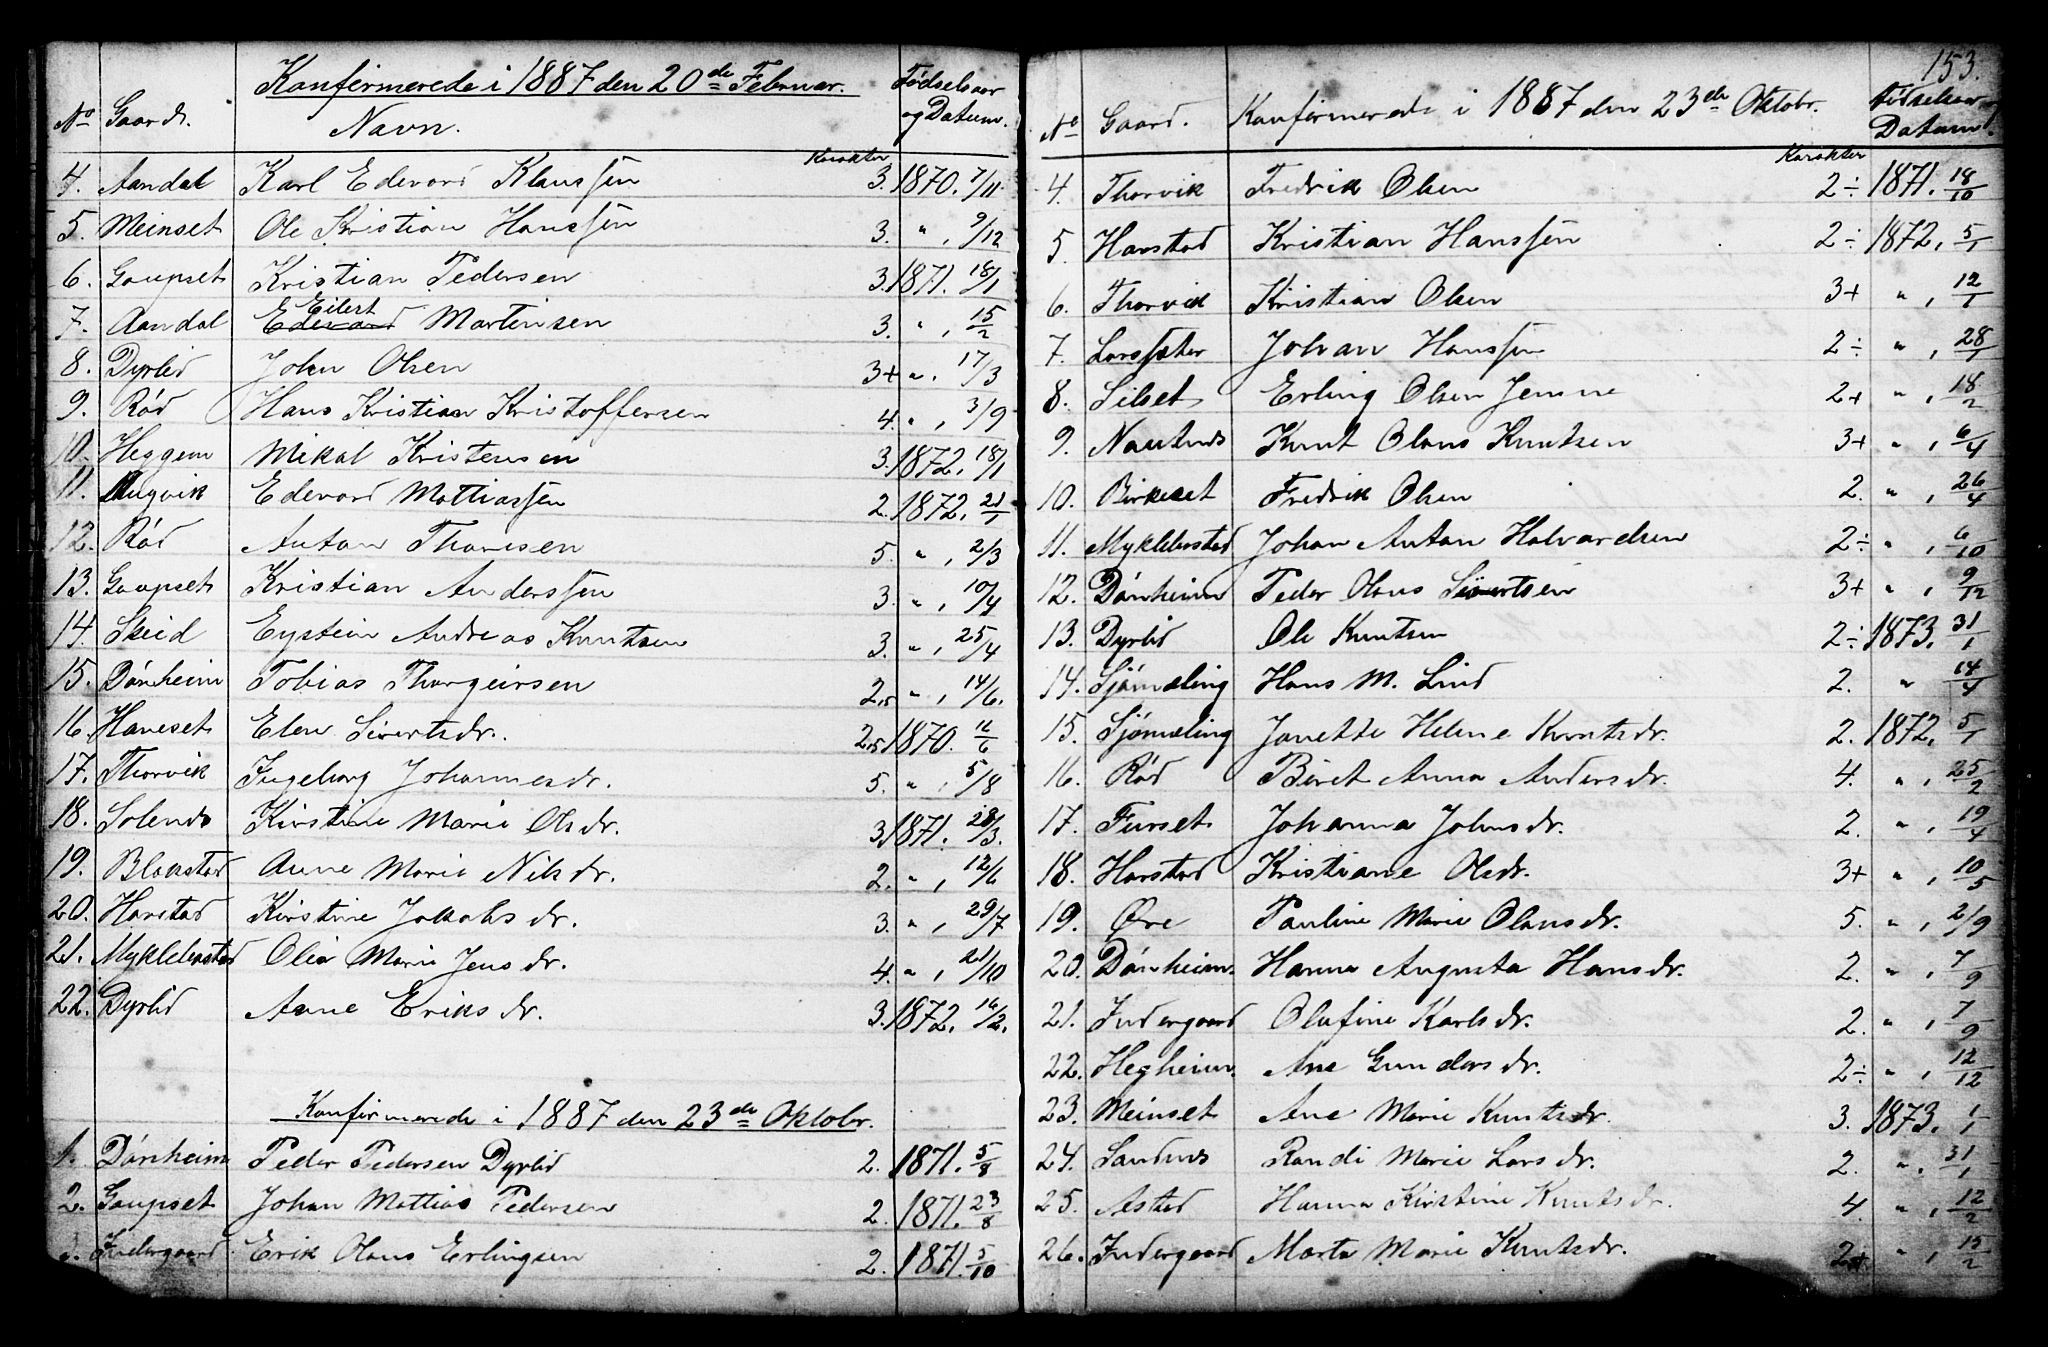 Konfirmerede i 1887 den 20de Februar.
No Gaard. Navn. Karakter Fødselsaar og Datum.
4. Aandal Karl Edevard Klaussen 3. 1870. 7/11
5. Meinset Ole Kristian Hanssen 3. " , 9/12
6. Gaupset Kristian Pedersen 3. 1871. 18/1
7. Aandal Edevard Eilert Martinsen 3. " , 15/2
8. Dyrlid John Olsen 3+ " . 17/3
9. Rød Hans Kristian Kristoffersen 4. " , 3/9
10. Heggem Mikal Kristensen 3. 1872. 18/1
11. Angvik Edevard Mattiassen 2. 1872. 21/1
12. Rød Anton Thoresen 5. " , 2/3
13. Gaupset Kristian Anderssen 3. " , 10/4
14. Skeid Eystein Andreas Knutsen 3. " , 25/4
15. Dønheim Tobias Thorgeirsen 2,5 " , 14/6.
16. Haneset Elen Sivertsdr. 2,5 1870. 16/6
17. Thorvik Ingeborg Johannesdr. 5. " , 5/8
18. Solends Kirstine Marie Olsdr. 3 1871. 28/3.
19. Blakstad Anne Marie Nilsdr. 2. " , 12/6
20. Harstad Kirstine Jakobsdr. 3. " , 29/7
21. Myklebostad Olia Marie Jensdr. 4. " , 21/10
22. Dyrlid Anne Eriksdr. 3. 1872. 16/2.
Konfirmerede i 1887 den 23de Oktobr.
1. Dønheim Peder Pedersen Dyrlid 2. 1871. 5/8
2. Gaupset Johan Mattias Pedersen 2. 1871. 23/8
3. Indergaard Erik Olaus Erlingsen 2. 1871. 5/10
153.
No Gaard. Konfirmerede i 1887 den 23de Oktobr. Karakter Fødselsaar og Datum.
4. Thorvik Fredrik Olsen 2÷ 1871. 18/10
5. Harstad Kristian Hanssen 2÷ 1872. 5/1
6. Thorvik Kristian Olsen 3+ " , 12/1
7. Larssæter Johan Hanssen 2÷ " , 28/1
8. Silset Erling Olsen Jenme 2+ " , 18/2
9. Nautnes Knut Olaus Knutsen 3+ " , 6/4
10. Birkeset Fredrik Olsen 2. " , 26/4
11. Myklebostad Johan Anton Halvardsen 2÷ " , 6/10
12. Dønheim Peder Olaus Sivertsen 3+ " , 9/12
13. Dyrlid Ole Knutsen 2÷ 1873. 31/1
14. Sjømæling Hans M. Lind 2. " 14/4
15. Sjømæling Janette Helene Knutsdr. 2. 1872. 5/1
16. Rød Beret Anna Andersdr. 4. " , 25/2
17. Furset Johanna Johnsdr. 2. " , 19/4
18. Harstad Kristiane Olsdr. 3+ " , 10/5
19. Øre Pauline Marie Olausdr. 5. " , 2/9
20. Dønheim. Hanna Augusta Hansdr. 2. " , 7/9
21. Indergaard Olufine Karlsdr. 2. " , 7/9
22. Hegheim. Ane Gundersdr. 2÷ " , 12/12
23. Meinset Ane Marie Knutsdr. 3. 1873. 1/1
24. Sandnes Randi Marie Larsdr. 2. " . 31/1
25. Astad Hanna Kirstine Knutsdr. 4. " , 12/2
26. Indergaard Marta Marie Knutsdr. 2+ " , 15/2